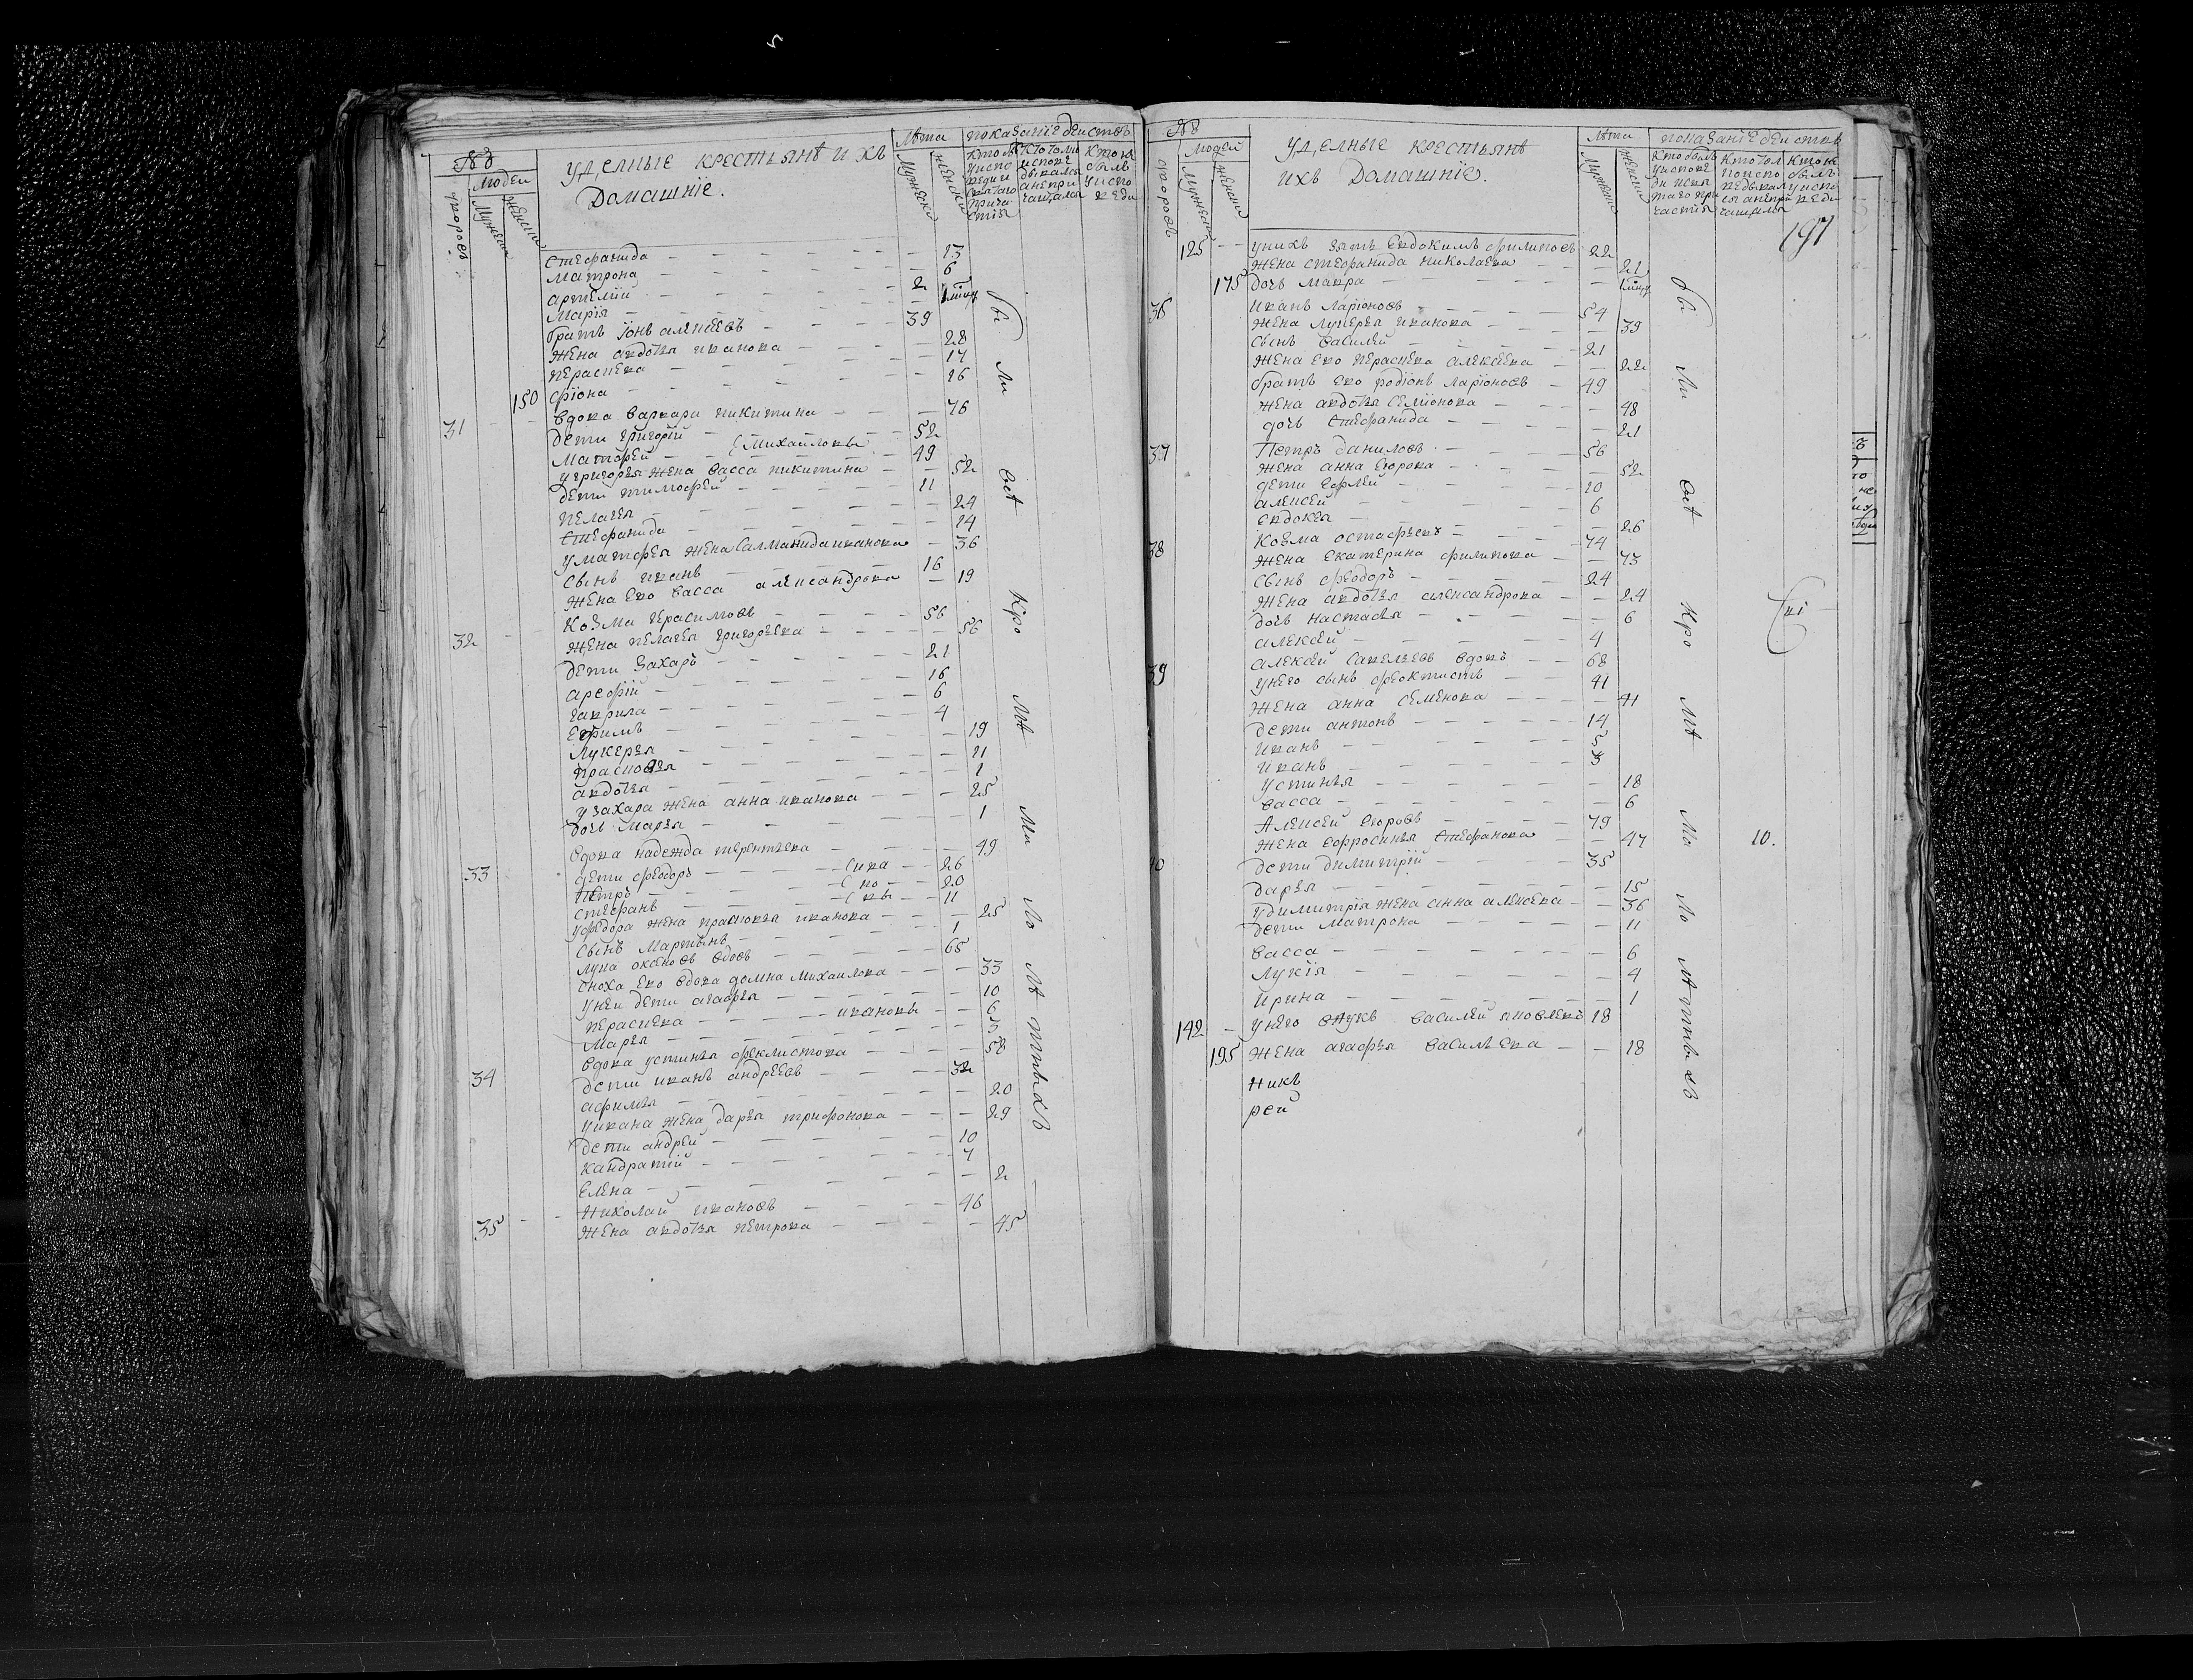 №
Людей
дворовъ
Мужеска
Женска
Уделные крестьянѣ и ихъ
Домашнїе.
Лѣта
Мужеска
Женска
показанїе действъ
Стефанида 13
Матрона 6
Артемїй 2
Марїя
братъ Іонъ алексѣевъ 39
жена авдотья иванова 28
Параскева 17
150 16
вдова варвара никитина 76
31 дети григорїй 52
Матфей Михаиловы 49
у григорья жена васса никитина 52
дети тимофей 11
пелагея 24
Стефанида 14
у матфея жена Саламанида иванова 36
сынъ иванъ 16
жена ево васса александрова 19
Козма Герасимовъ 56
32 жена пелагея григорьева 56
дети Захаръ 21
арефїй 16
гаврила 6
Ефимъ 4
Лукерья 19
прасковья 11
авдотья 1
у захара жена анна иванова 25
дочь марья 1
вдова надежда терентьева 49
33 дети феодоръ 26
Петръ 20
стефанъ 11
у федора жена прасковья иванова 25
сынъ Мартынъ 1
лука вдовъ 65
сноха ево вдова домна михаилова 33
у неи дети агафья 10
параскева ивановы 6
марья
вдова устинья феклистова 58
34 дети иванъ андреевъ 32
афимья 20
у ивана жена дарья трифонова 29
дети андрей 10
кандратїй 7
Елена 2
Николай ивановъ 46
35 жена авдотья петрова 45
бы
ли
всѣ
кро
мѣ
ма
ло
лѣтныхъ
№
Людей
дворовъ
Мужеска
Женска
Уделные крестьянѣ
ихъ Домашнїе.
Лѣта
Мужеска
Женска
показанїе действъ
197
125 у нихъ зять Евдокимъ филиповъ 22
жена стефанида николаева 21
175 дочь макра
36 иванъ Ларїоновъ 54
жена лукерья иванова 39
сынъ василей 21
жена ево параскева алексѣева 22
братъ ево родїонъ ларїоновъ 49
жена авдотья семїонова 48
дочь стефанида 21
37 Петръ даниловъ 56
жена анна Егорова 52
дети 10
алексей 6
евдокея 26
38 Козма остафьевъ 74
жена екатерина филипова 73
сынъ феодоръ 24
жена авдотья александрова 24
дочь настасья 6
алексѣй 4
39 алексѣй савельевъ вдовъ 68
у него сынъ феоктистъ 41
жена анна семенова 41
дети антонъ 14
иванъ 5
иванъ 3
устинья 18
васса 6
40 Алексей Егоровъ 79
жена Еофросинья стефанова 47
дети димитрїй 35
дарья 15
у димитрїя жена анна алексева 36
дети матрона 11
васса 6
Лукїя 4
ирина 1
142 у него внукъ василей яковлевъ 18
195 жена агафья васильева 18
Никъ
рей
бы
ли
всѣ
кро
мѣ
ма
ло
лѣтныхъ
10.